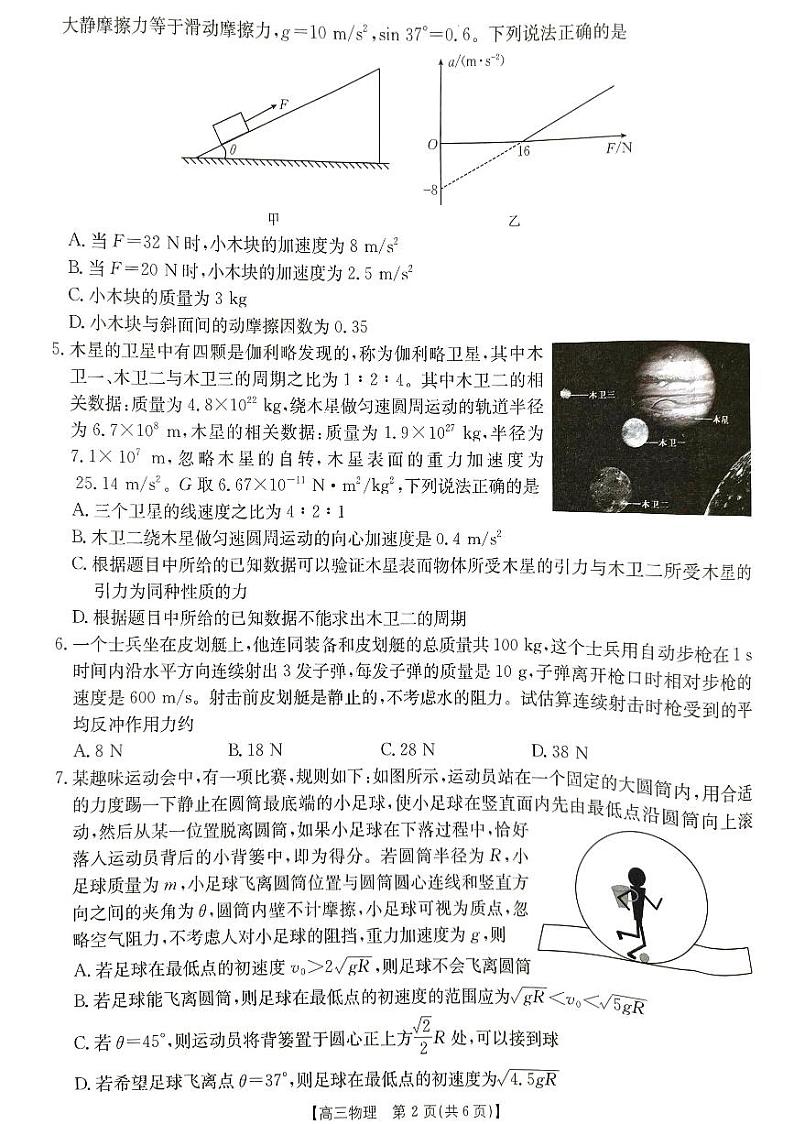 大静摩擦力等于滑动摩擦力,g=10 m/s²,sin 37°=0.6。下列说法正确的是
a/(m·s⁻²)
F
θ
O
16
F/N
-8
甲
乙
A. 当 F=32 N 时,小木块的加速度为 8 m/s²
B. 当 F=20 N 时,小木块的加速度为 2.5 m/s²
C. 小木块的质量为 3 kg
D. 小木块与斜面间的动摩擦因数为 0.35
5. 木星的卫星中有四颗是伽利略发现的,称为伽利略卫星,其中木
卫一、木卫二与木卫三的周期之比为 1∶2∶4。其中木卫二的相
关数据:质量为 4.8×10²² kg,绕木星做匀速圆周运动的轨道半径
为 6.7×10⁸ m,木星的相关数据:质量为 1.9×10²⁷ kg,半径为
7.1×10⁷ m,忽略木星的自转,木星表面的重力加速度为
25.14 m/s²。G 取 6.67×10⁻¹¹ N·m²/kg²,下列说法正确的是
木卫三
木星
木卫一
木卫二
A. 三个卫星的线速度之比为 4∶2∶1
B. 木卫二绕木星做匀速圆周运动的向心加速度是 0.4 m/s²
C. 根据题目中所给的已知数据可以验证木星表面物体所受木星的引力与木卫二所受木星的
引力为同种性质的力
D. 根据题目中所给的已知数据不能求出木卫二的周期
6. 一个士兵坐在皮划艇上,他连同装备和皮划艇的总质量共 100 kg,这个士兵用自动步枪在 1 s
时间内沿水平方向连续射出 3 发子弹,每发子弹的质量是 10 g,子弹离开枪口时相对步枪的
速度是 600 m/s。射击前皮划艇是静止的,不考虑水的阻力。试估算连续射击时枪受到的平
均反冲作用力约
A. 8 N B. 18 N C. 28 N D. 38 N
7. 某趣味运动会中,有一项比赛,规则如下:如图所示,运动员站在一个固定的大圆筒内,用合适
的力度踢一下静止在圆筒最底端的小足球,使小足球在竖直面内先由最低点沿圆筒向上滚
动,然后从某一位置脱离圆筒,如果小足球在下落过程中,恰好
落入运动员背后的小背篓中,即为得分。若圆筒半径为 R,小
足球质量为 m,小足球飞离圆筒位置与圆筒圆心连线和竖直方
向之间的夹角为 θ,圆筒内壁不计摩擦,小足球可视为质点,忽
略空气阻力,不考虑人对小足球的阻挡,重力加速度为 g,则
A. 若足球在最低点的初速度 v₀>2√gR,则足球不会飞离圆筒
B. 若足球能飞离圆筒,则足球在最低点的初速度的范围应为√gR<v₀<√5gR
C. 若 θ=45°,则运动员将背篓置于圆心正上方√2/2 R 处,可以接到球
D. 若希望足球飞离点 θ=37°,则足球在最低点的初速度为√4.5gR
【高三物理 第 2 页(共 6 页)】